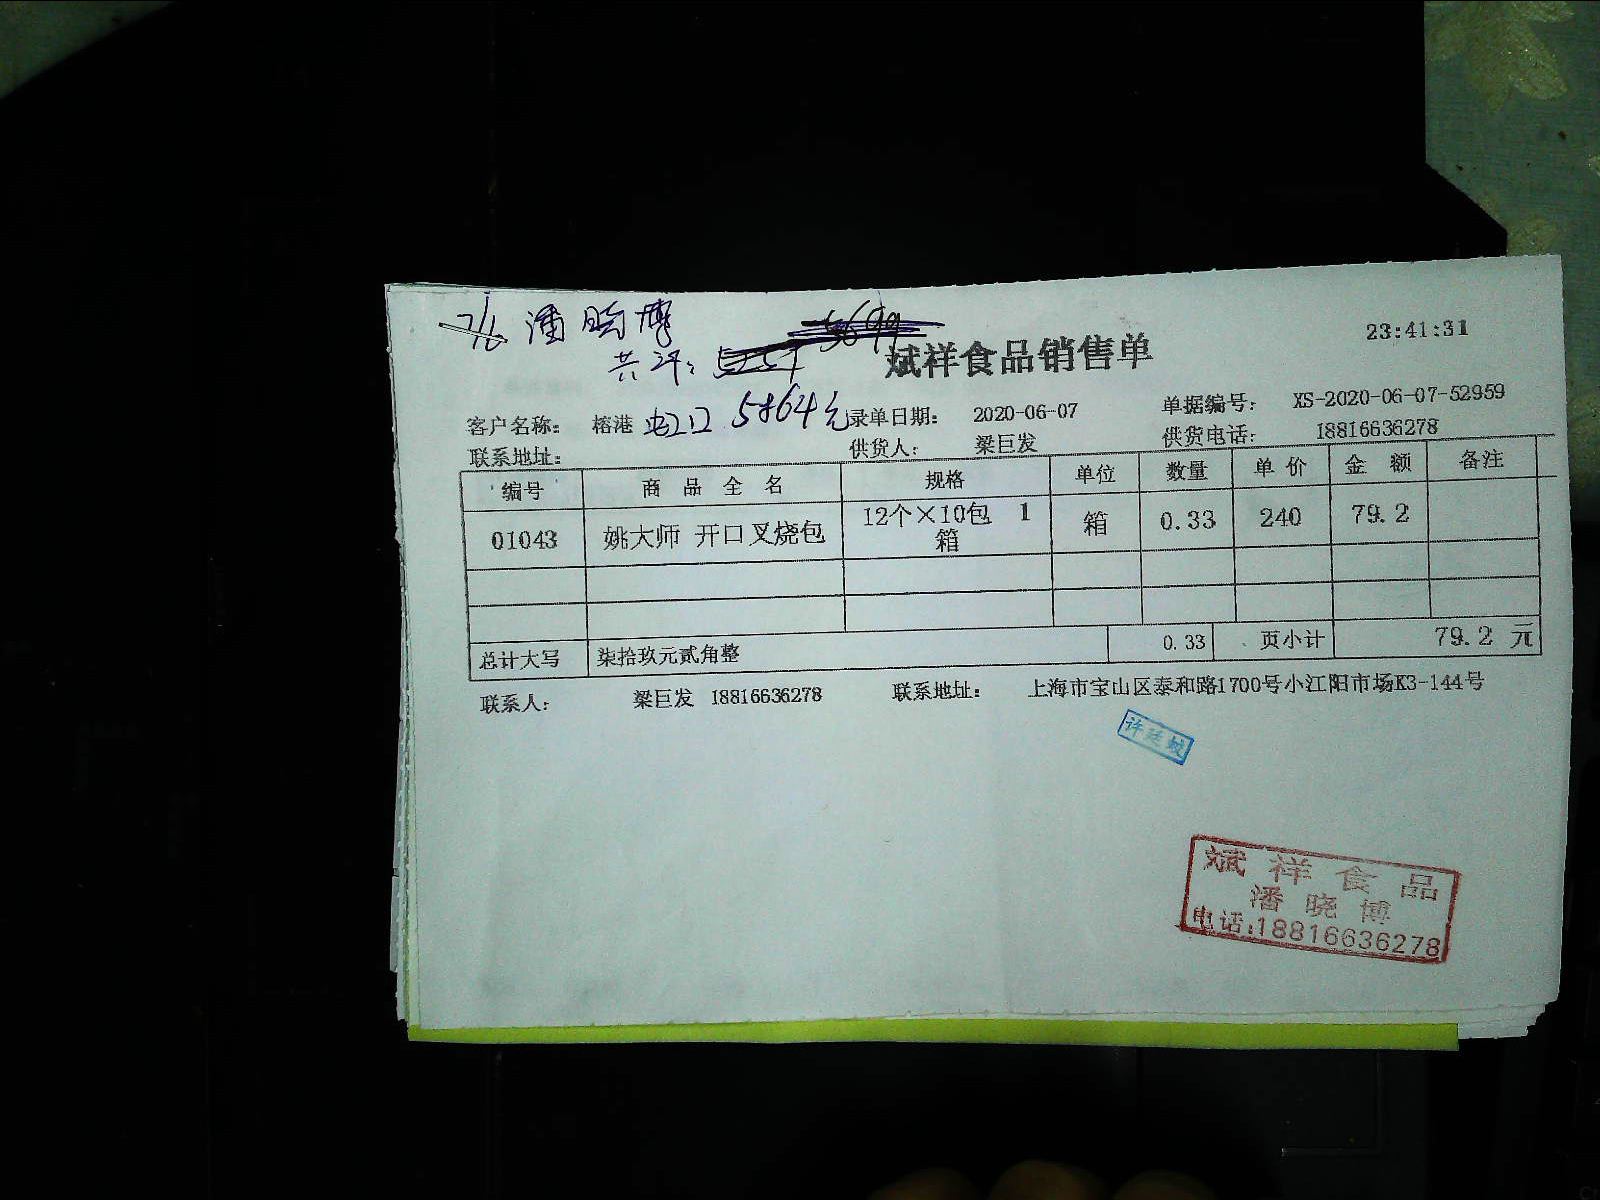 潘晓博
23:41:31
斌祥食品销售单
共计:
客户名称: 榕港 虹口 5864元 录单日期: 2020-06-07 单据编号: XS-2020-06-07-52959
联系地址: 供货人: 梁巨发 供货电话: 18816636278
编号 商品全名 规格 单位 数量 单价 金额 备注
01043 姚大师 开口叉烧包 12个×10包 1箱 箱 0.33 240 79.2
总计大写 柒拾玖元贰角整 0.33 页小计 79.2 元
联系人: 梁巨发 18816636278 联系地址: 上海市宝山区泰和路1700号小江阳市场K3-144号
斌祥食品
潘晓博
电话:18816636278